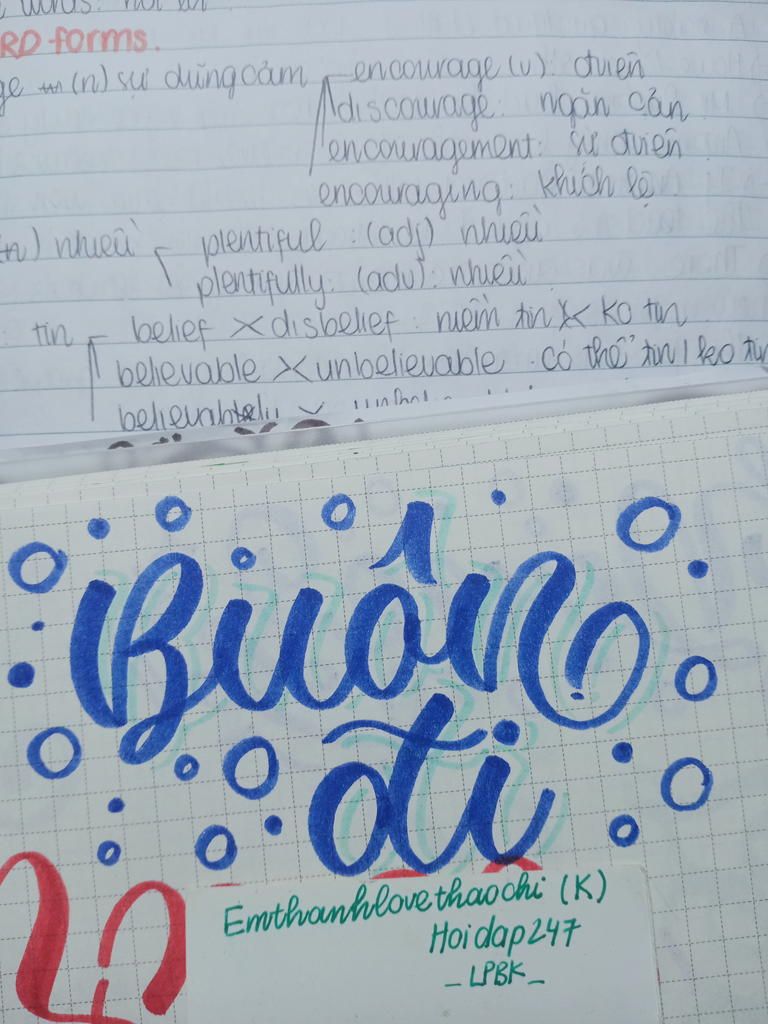 RD forms.
(n) sự dũng cảm encourage (v): đviên
discourage: ngăn cản
encouragement: sự đviên
encouraging: khích lệ
nhiều plentiful: (adj) nhiều
plentifully: (adv): nhiều
tin belief × disbelief: niềm tin × ko tin
believable × unbelievable: có thể tin / keo
Buồn
đi
Emthanhlovethaochi (K)
Hoidap247
_LPBK_